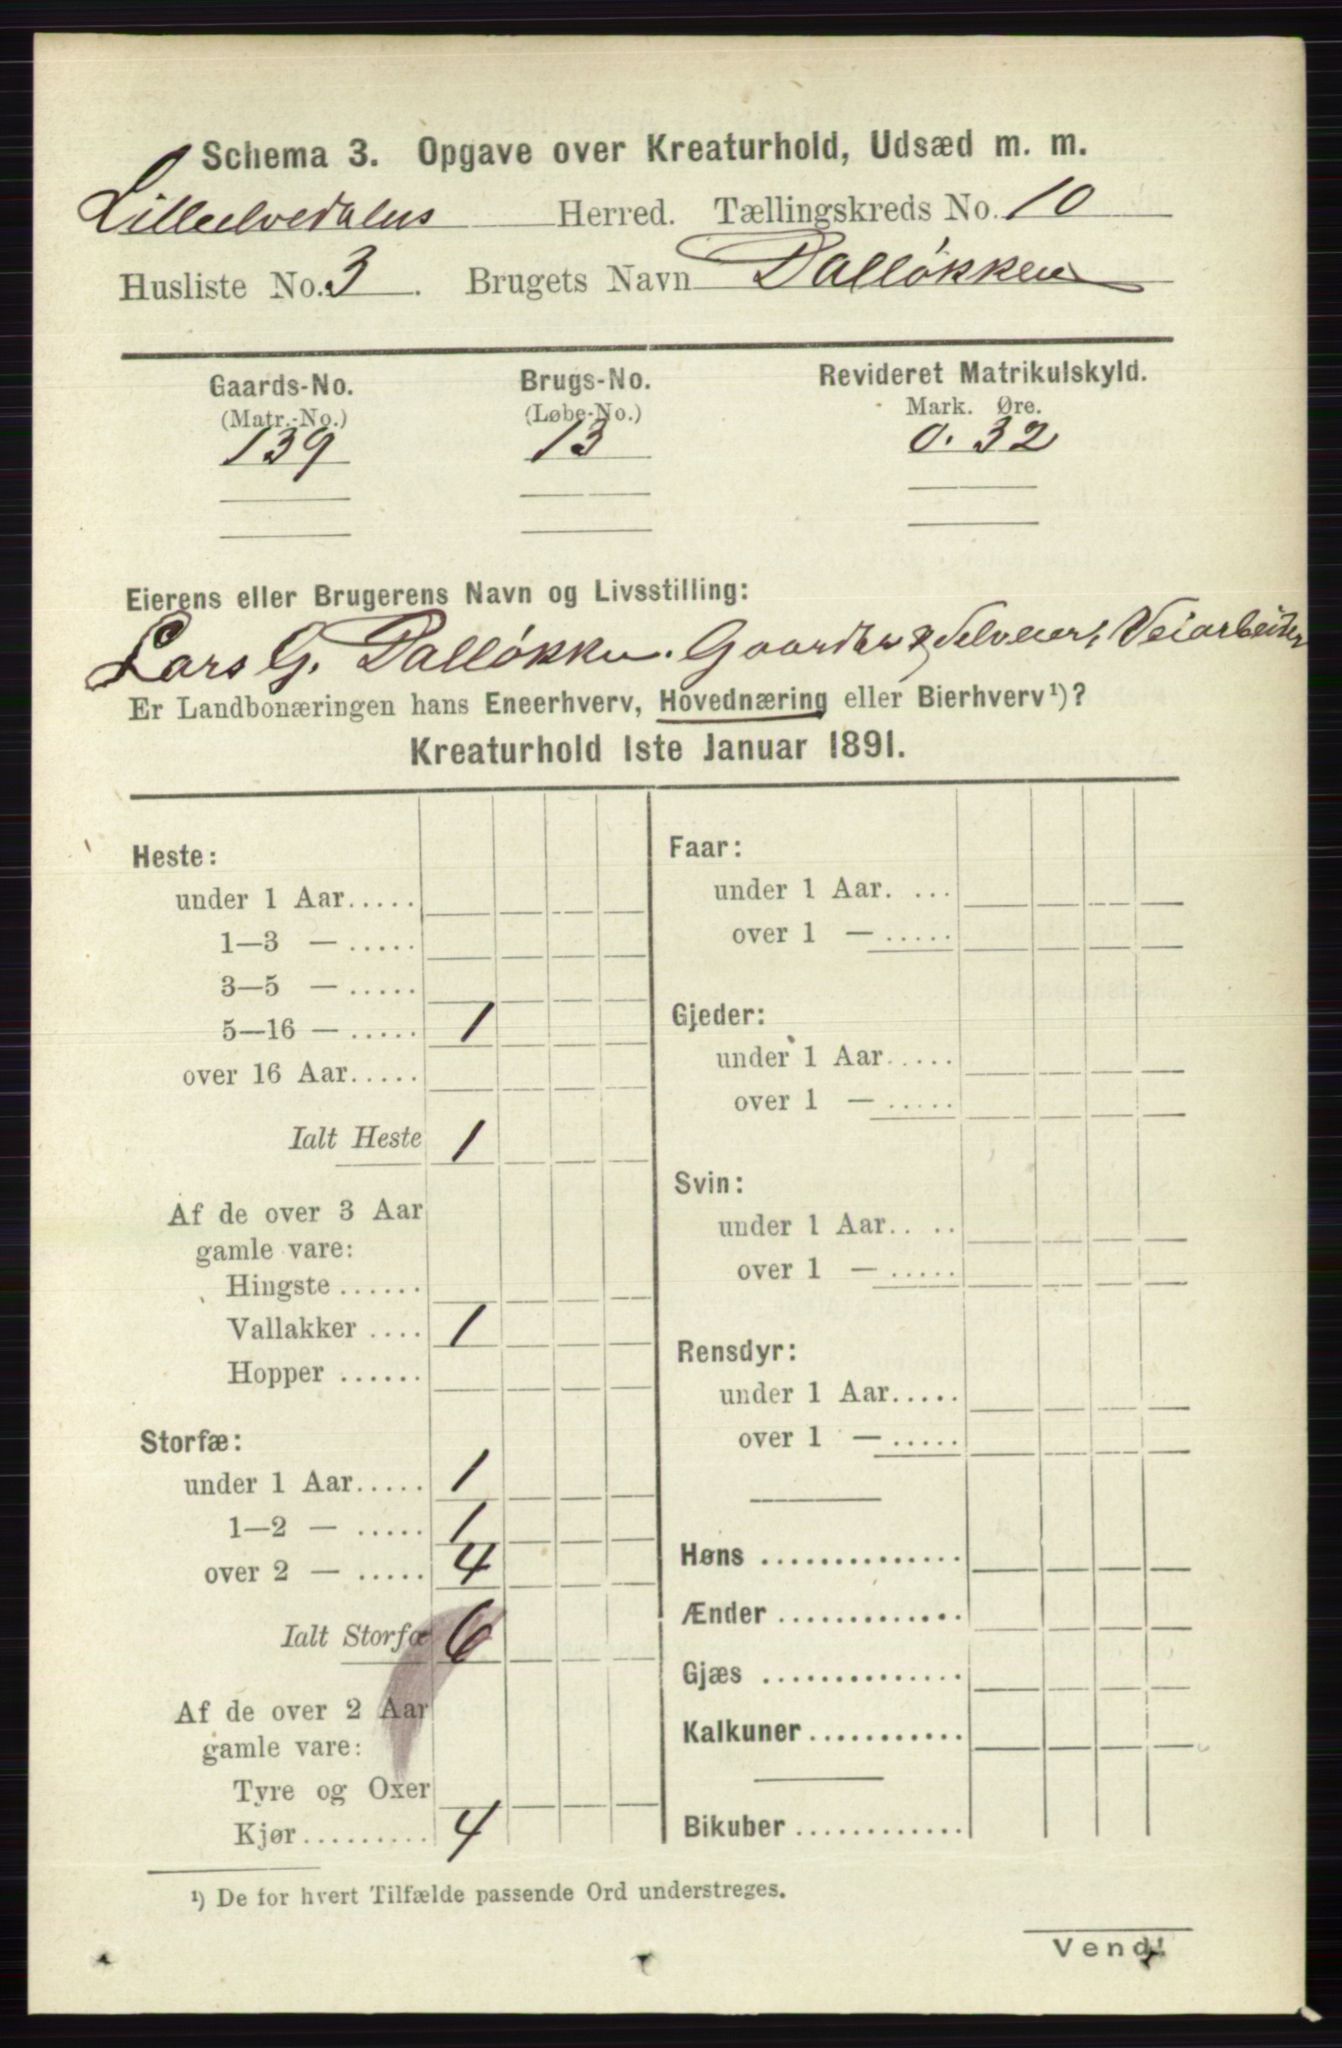 Schema 3. Opgave over Kreaturhold, Udsæd m. m.
Lilleelvedalens Herred. Tællingskreds No. 10
Husliste No. 3. Brugets Navn Dalløkken
Gaards-No. Brugs-No. Revideret Matrikulskyld.
(Matr.-No.) (Løbe-No.) Mark. Øre.
139 13 0. 32
Eierens eller Brugerens Navn og Livsstilling:
Lars G. Dalløkken. Gaardbr & Selveier, Veiarbeider
Er Landbonæringen hans Eneerhverv, Hovednæring eller Bierhverv¹)?
Kreaturhold 1ste Januar 1891.
Heste:
under 1 Aar.....
1—3 — .....
3—5 — .....
5—16 — ..... 1
over 16 Aar.....
Ialt Heste 1
Af de over 3 Aar
gamle vare:
Hingste ......
Vallakker .... 1
Hopper ......
Storfæ:
under 1 Aar..... 1
1—2 — ..... 1
over 2 — ..... 4
Ialt Storfæ 6
Af de over 2 Aar
gamle vare:
Tyre og Oxer
Kjør......... 4
Faar:
under 1 Aar. ...
over 1 — .....
Gjeder:
under 1 Aar.....
over 1 — .....
Svin:
under 1 Aar.. ..
over 1 — .....
Rensdyr:
under 1 Aar.....
over 1 — .....
Høns ..............
Ænder .............
Gjæs ..............
Kalkuner...........
Bikuber ............
¹) De for hvert Tilfælde passende Ord understreges.
Vend!